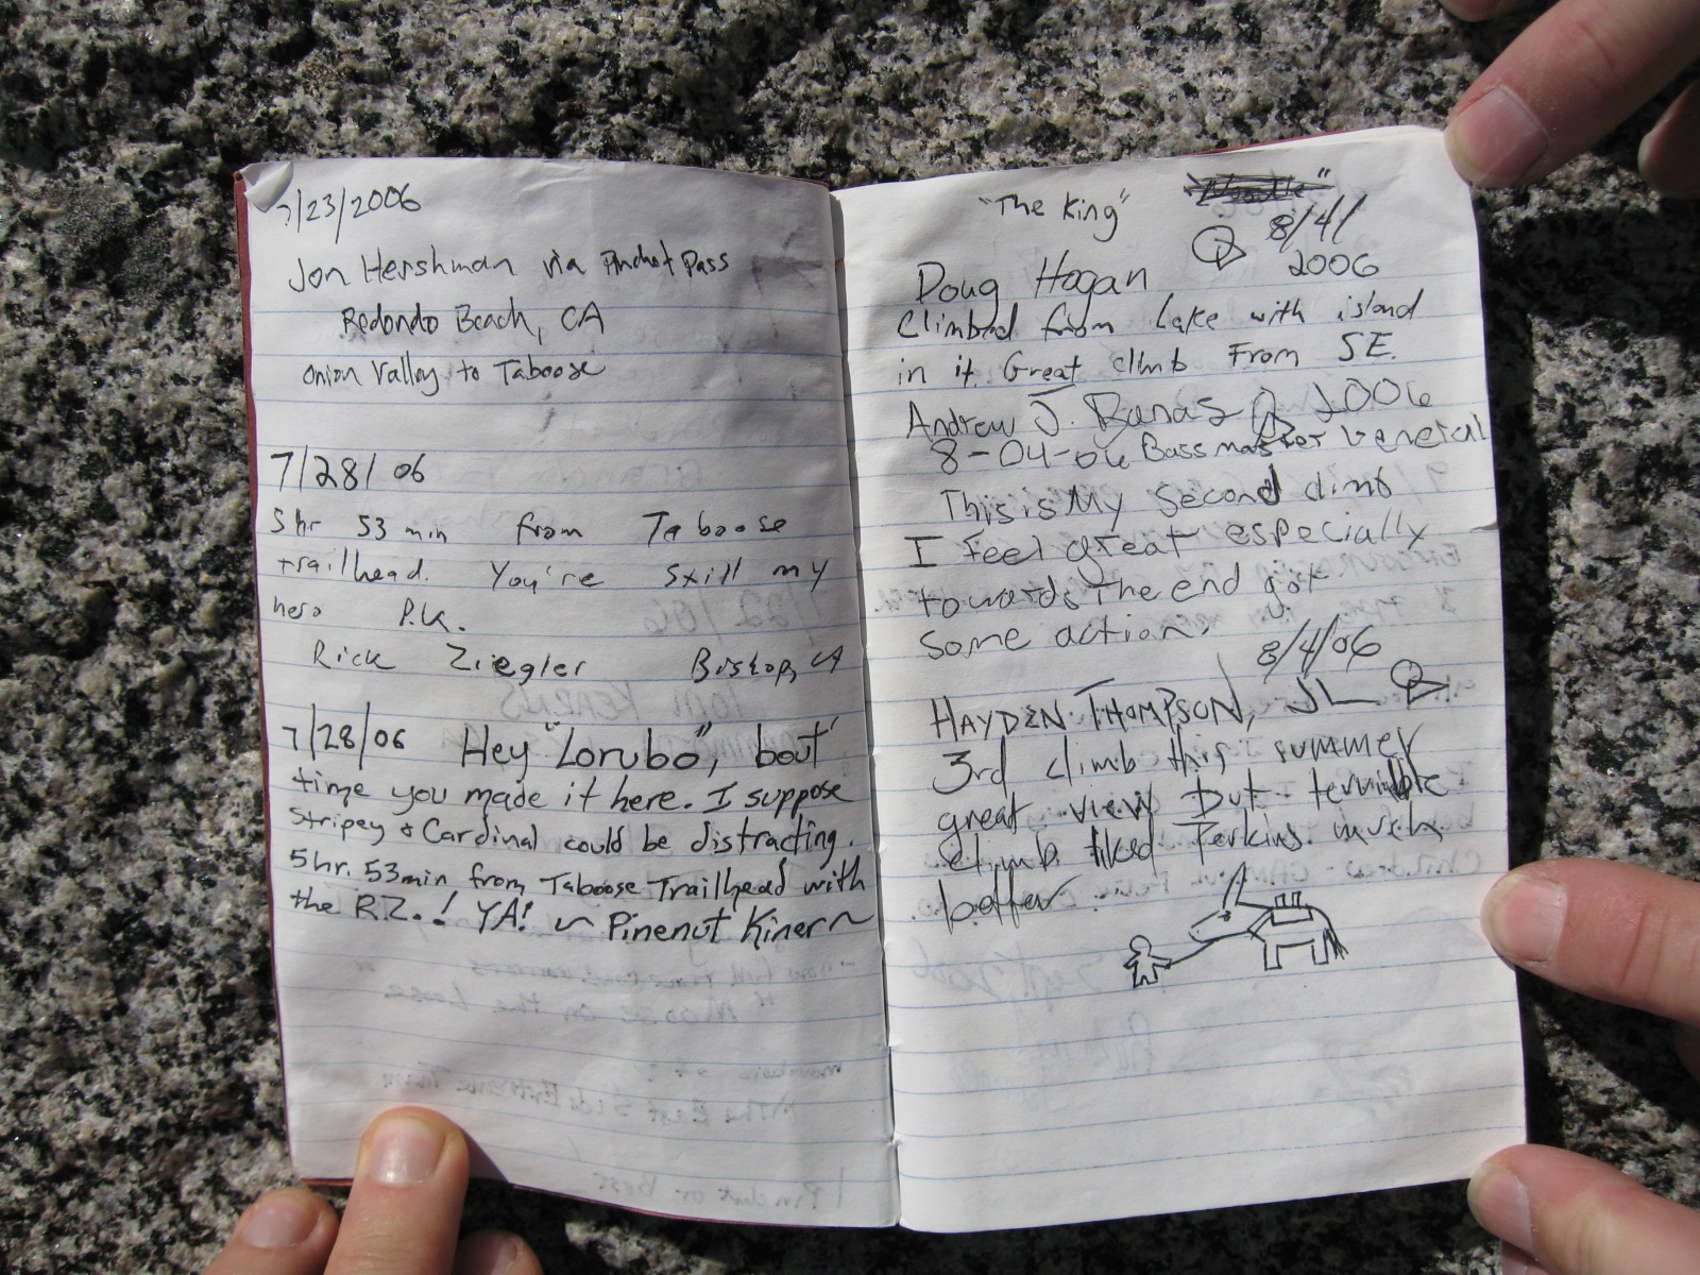 7/23/2006
Jon Hershman via Pinchot Pass
Redondo Beach, CA
Onion Valley to Taboose
7/28/06
5hr 53 min from Taboose
trailhead. You're still my
hero P.K.
Rick Ziegler Bishop, CA
7/28/06 Hey "Zorubo", bout
time you made it here. I suppose
Stripey & Cardinal could be distracting.
5hr. 53min from Taboose Trailhead with
the R.Z.! YA! ~ Pinenut Kiner ~
"The King"
8/4/
2006
Doug Hogan
Climbed from Lake with island
in it. Great climb From SE.
Andrew J. Banas 2006
8-04-06 Bass master General
This is My Second climb
I Feel great especially
towards The end got
some action.
8/4/06
HAYDEN THOMPSON, JL
3rd climb this summer
great view but terrible
climb liked Perkins much
better